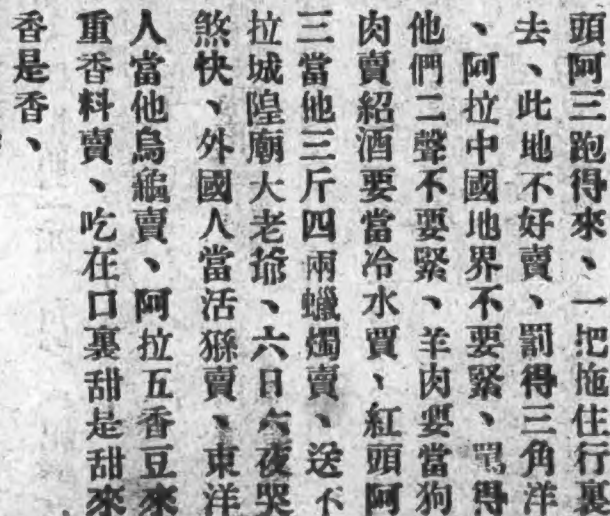 頭阿三跑得來、一把拖住行裏
去、此地不好賣、罰得三角洋
、阿拉中國地界不要緊、罵得
他們二聲不要緊、羊肉要當狗
肉賣紹酒要當冷水買、紅頭阿
三當他三斤四兩蠟燭賣、送不
拉城隍廟大老爺、六日六夜哭
煞快、外國人當活猻賣、東洋
人當他烏龜賣、阿拉五香豆來
重香料賣、吃在口裏甜是甜來
香是香、